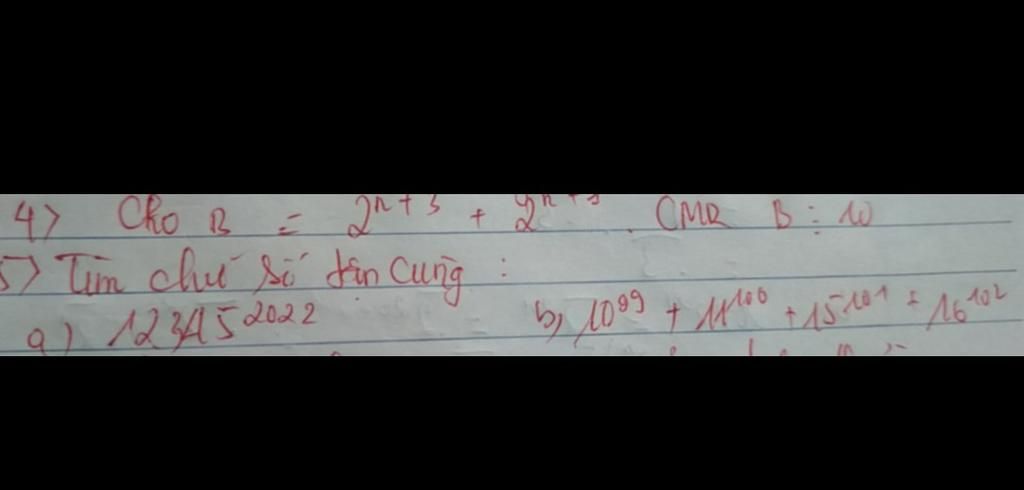 4> Cho B = 2ⁿ⁺³ + 2ⁿ⁺ . CMR B ⋮ 10
5> Tìm chữ số tận cùng :
a) 12345²⁰²² b) 10⁹⁹ + 11¹⁰⁰ + 15¹⁰¹ + 16¹⁰²